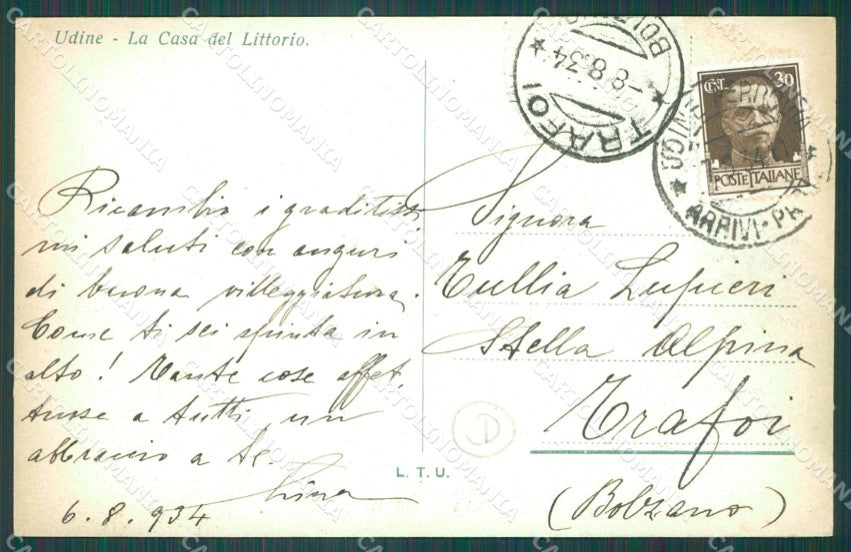 Udine - La Casa del Littorio.
Ricambio i graditissi
mi saluti con auguri
di buona villeggiatura.
Come ti sei spinta in
alto! Tante cose affet
tuose a tutti, un
abbraccio a te.
6.8.934
Signora
Tullia Lupieri
Stella Alpina
Trafoi
(Bolzano)
L. T. U.
CENT. 30
POSTE ITALIANE
TRAFOI
-8.8.34
ARRIVI-PA